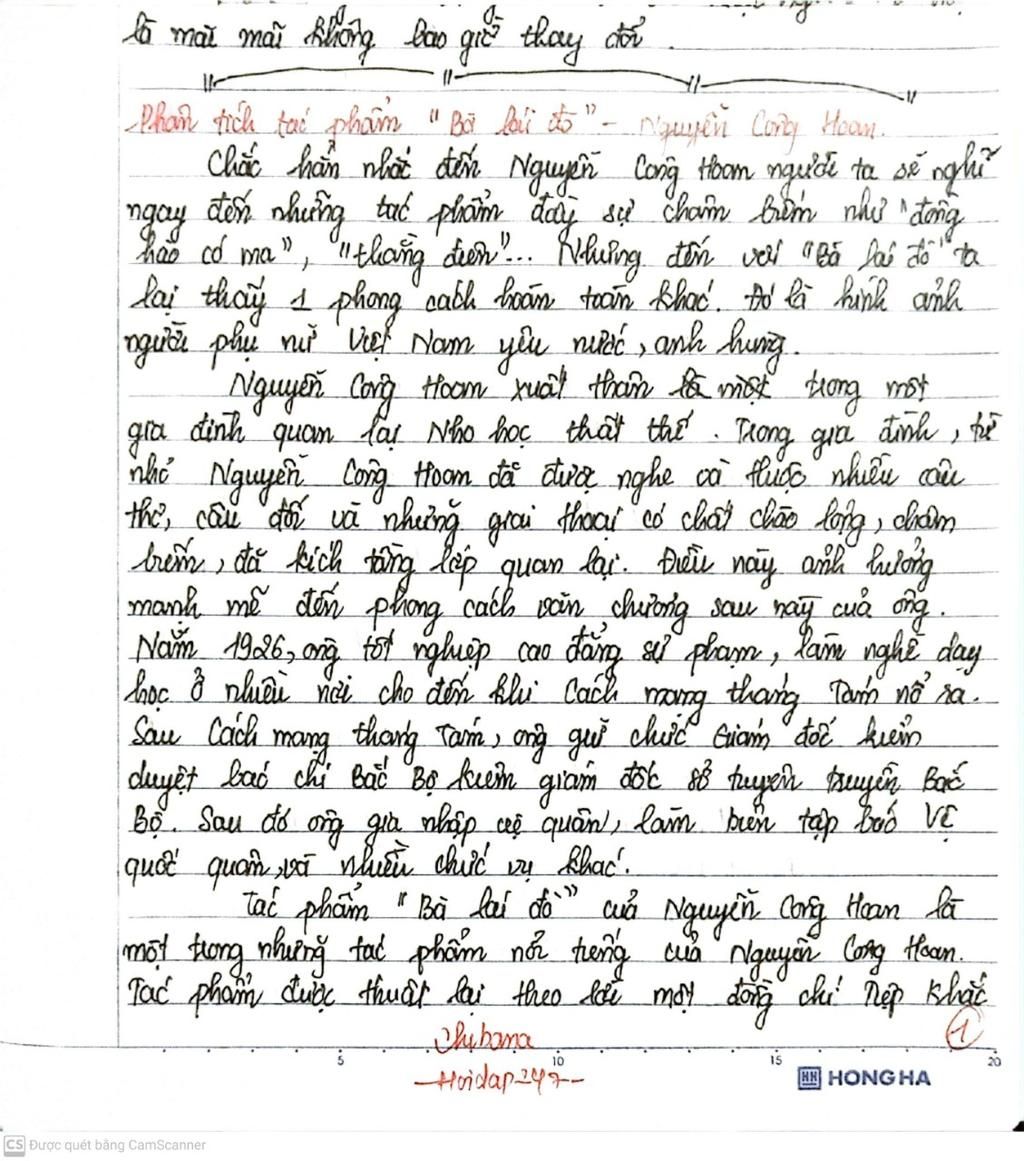 là mãi mãi không bao giờ thay đổi.
Phân tích tác phẩm "Bà lái đò" - Nguyễn Công Hoan.
Chắc hẳn nhắc đến Nguyễn Công Hoan người ta sẽ nghĩ
ngay đến những tác phẩm đầy sự châm biếm như "đồng
hào có ma", "thằng điên"... Nhưng đến với "Bà lái đò" ta
lại thấy 1 phong cách hoàn toàn khác. Đó là hình ảnh
người phụ nữ Việt Nam yêu nước, anh hùng.
Nguyễn Công Hoan xuất thân là một trong một
gia đình quan lại Nho học thất thế. Trong gia đình, từ
nhỏ Nguyễn Công Hoan đã được nghe cà thuộc nhiều câu
thơ, câu đối và những giai thoại có chất chào lộng, châm
biếm, đã kích tầng lớp quan lại. Điều này ảnh hưởng
mạnh mẽ đến phong cách văn chương sau này của ông.
Năm 1926, ông tốt nghiệp cao đẳng sư phạm, làm nghề dạy
học ở nhiều nơi cho đến khi Cách mạng tháng Tám nổ ra.
Sau Cách mạng tháng Tám, ông giữ chức Giám đốc kiểm
duyệt báo chí Bắc Bộ kiêm giám đốc sở tuyên truyền Bắc
Bộ. Sau đó ông gia nhập vệ quân, làm biên tập báo Vệ
quốc quân, và nhiều chức vụ khác.
Tác phẩm "Bà lái đò" của Nguyễn Công Hoan là
một trong những tác phẩm nổi tiếng của Nguyễn Công Hoan.
Tác phẩm được thuật lại theo lời một đồng chí Tiếp Khắc
1
Chibana
-Hoidap247-
5 10 15 20
HONG HA
CS Được quét bằng CamScanner